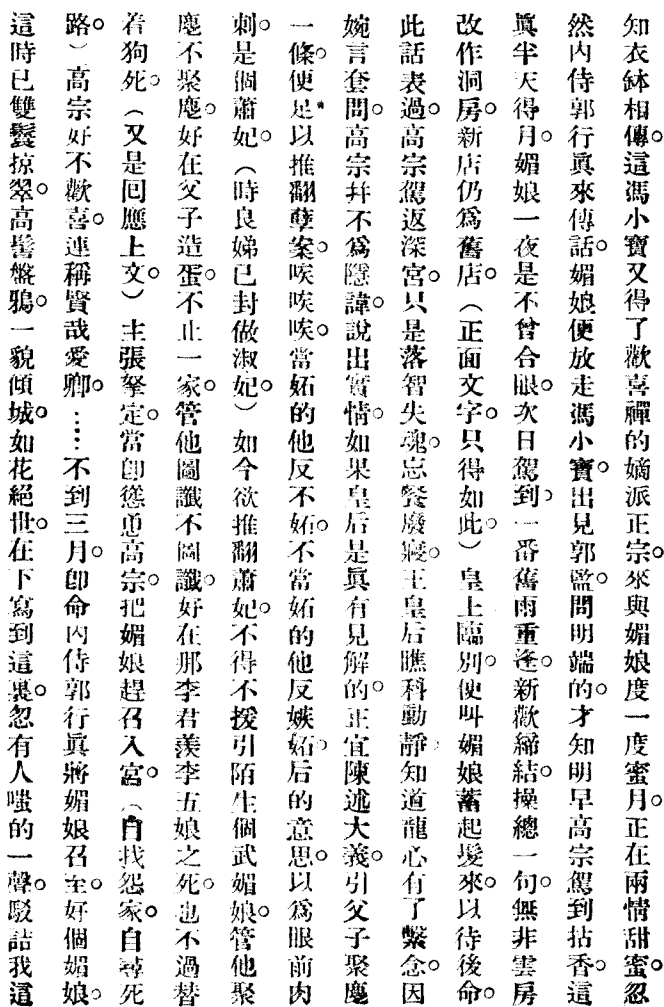 知衣鉢相傳。這馮小寶又得了歡喜禪的嫡派正宗。來與媚娘度一度蜜月。正在兩情甜蜜。忽
然內侍郭行眞來傳話。媚娘便放走馮小寶。出見郭監。問明端的。才知明早高宗駕到拈香。這
眞半天得月。媚娘一夜是不曾合眼。次日駕到。一番舊雨重逢。新歡締結。操總一句。無非雲房
改作洞房。新店仍爲舊店。（正面文字。只得如此。）皇上臨別。便叫媚娘蓄起髮來。以待後命。
此話表過。高宗駕返深宮。只是落智失魂。忘餐廢寢。王皇后瞧科動靜。知道龍心有了繫念。因
婉言套問。高宗幷不爲隱諱。說出實情。如果皇后是眞有見解的。正宜陳述大義。引父子聚麀
一條。便足以推翻孽案。唉唉唉。當妬的他反不妬。不當妬的他反嫉妬。后的意思。以爲眼前肉
刺。是個蕭妃。（時良娣已封做淑妃）如今欲推翻蕭妃。不得不援引陌生個武媚娘。管他聚
麀不聚麀。好在父子造蛋。不止一家。管他圖讖不圖讖。好在那李君羨李五娘之死。也不過替
若狗死。（又是囘應上文。）主張拏定。當卽慫恿高宗。把媚娘趕召入宮。（自找怨家。自尋死
路。）高宗好不歡喜。連稱賢哉愛卿。⋯⋯不到三月。卽命內侍郭行眞將媚娘召至。好個媚娘。
這時已雙鬢掠翠。高髻盤鴉。一貌傾城。如花絕世。在下寫到這裏。忽有人嗤的一聲。駁詰我這